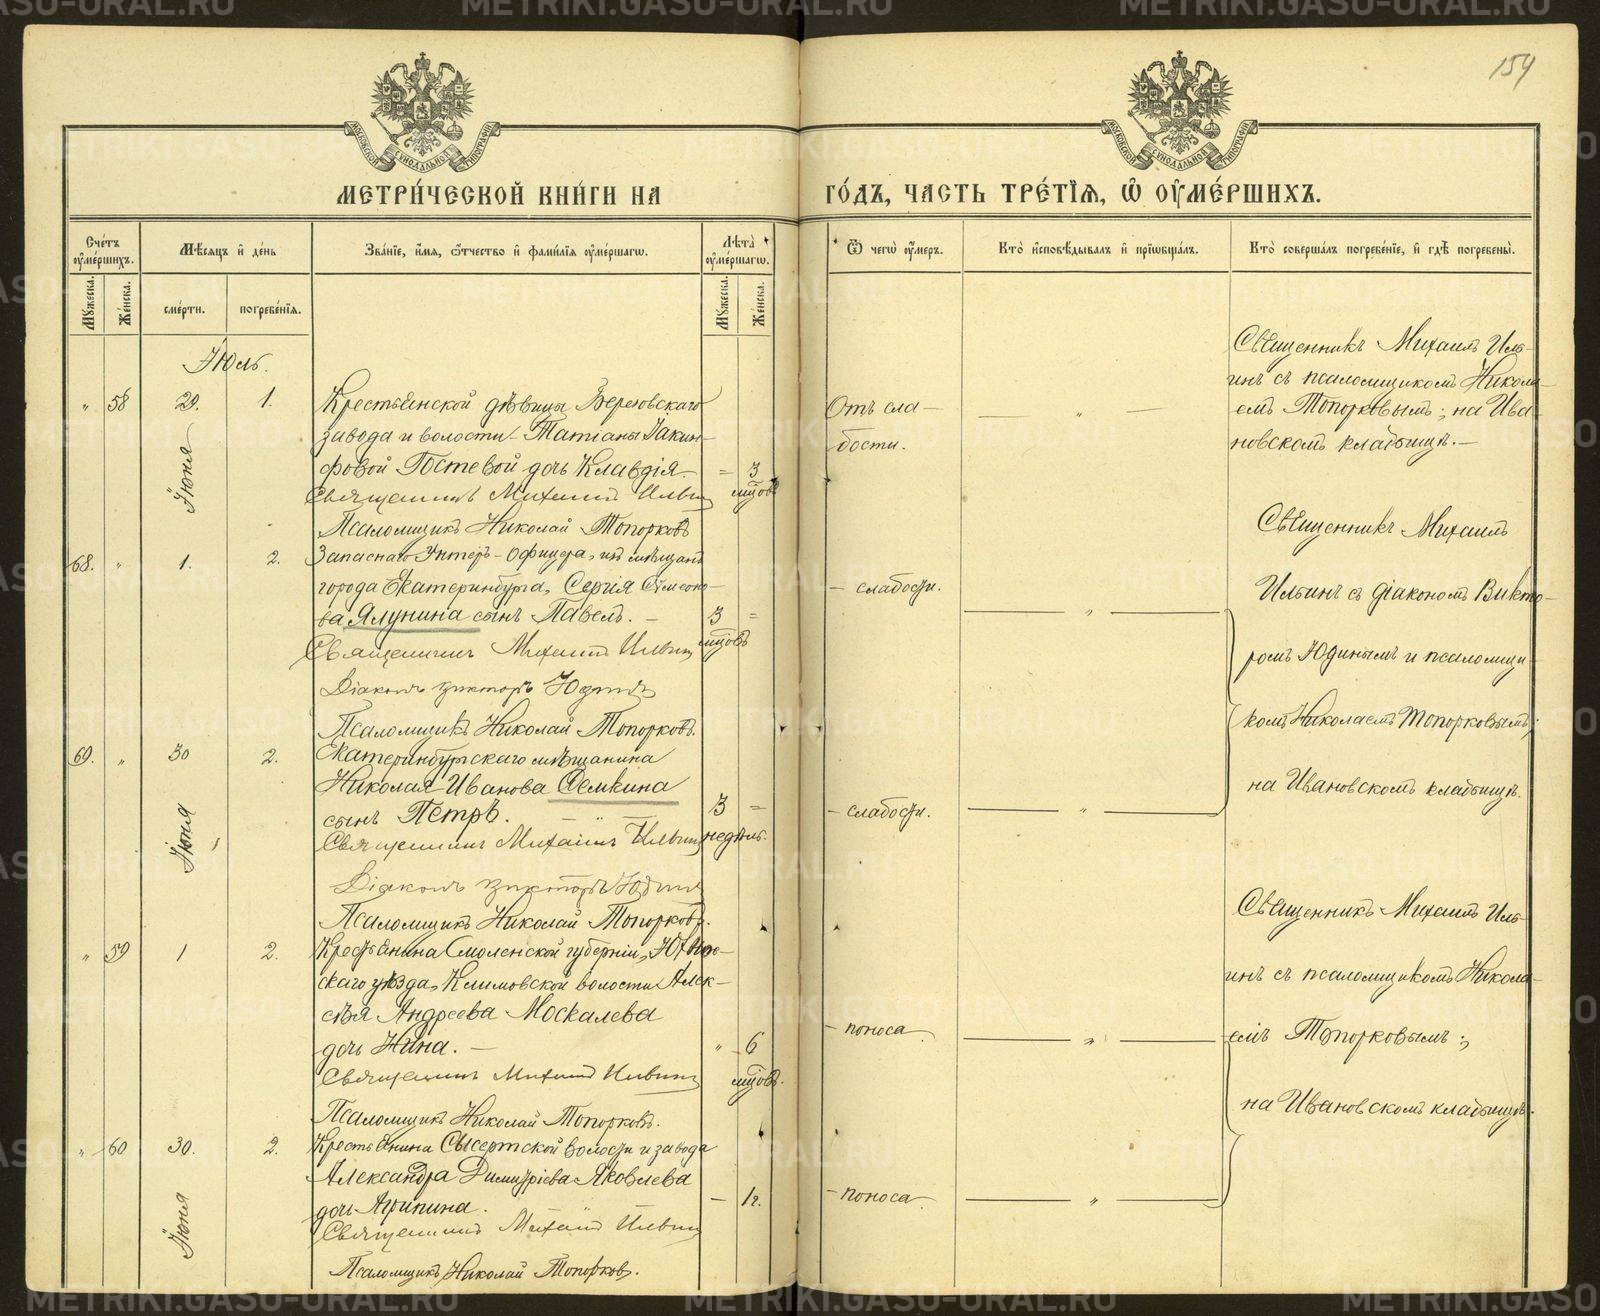 154
МЕТРИ́ЧЕСКОЙ КНИ́ГИ НА ГО́ДЪ, ЧАСТЬ ТРЕ́ТІѦ, Ѡ ОУМЕ́РШИХЪ.
Сче́тъ оумершихъ.
Мѣсяцъ и де́нь
Зва́ніе, и́мя, ѻтчество и фами́лія оуме́ршагѡ.
Лѣта̀ оуме́ршагѡ.
Ѿ чегѡ̀ оу́меръ.
Кто̀ исповѣ́дывалъ и пріѡбща́лъ.
Кто̀ соверша́лъ погребе́ніе, и гдѣ̀ погребены̀.
Мꙋжеска.
Же́нска.
сме́рти.
погребе́нія.
Мꙋжеска.
Же́нска.
Іюль.
" 58 29. Іюня 1.
Крестьянской дѣвицы Березовскаго
завода и волости Татіаны Іакин-
фовой Гостевой дочь Клавдія
= 3 мцовъ
Священникъ Михаилъ Ильин
Псаломщикъ Николай Топорковъ
Отъ сла-
бости.
Священникъ Михаилъ Иль-
инъ съ псаломщикомъ Никола-
емъ Топорковымъ; на Ива-
новскомъ кладбищѣ.
68. " 1. 2.
Запаснаго Унтеръ-Офицера, изъ мѣщанъ
города Екатеринбурга, Сергія Сѵмеоно-
ва Ялунина сынъ Павелъ.
3 мцовъ =
Священникъ Михаилъ Ильин
Діаконъ Викторъ Юдинъ
Псаломщикъ Николай Топорковъ.
слабости.
Священникъ Михаилъ
Ильинъ съ діакономъ Викто-
ромъ Юдинымъ и псаломщи-
комъ Николаемъ Топорковымъ;
на Ивановскомъ кладбищѣ.
69. " 30 Іюня 2.
Екатеринбургскаго мѣщанина
Николая Иванова Семкина
сынъ Петръ.
3 недѣль. =
Священникъ Михаилъ Ильин
Діаконъ Викторъ Юдинъ
Псаломщикъ Николай Топорковъ.
слабости.
" 59 1 2.
Крестьянина Смоленской губерніи, Юхнов-
скаго уѣзда, Климовской волости Алек-
сѣя Андреева Москалева
дочь Нина.
" 6 мцовъ.
Священникъ Михаилъ Ильин
Псаломщикъ Николай Топорковъ.
поноса
Священникъ Михаилъ Иль-
инъ съ псаломщикомъ Никола-
емъ Топорковымъ;
на Ивановскомъ кладбищѣ.
" 60 30. Іюня 2.
Крестьянина Сысертской волости и завода
Александра Димитріева Яковлева
дочь Агрипина.
1 г.
Священникъ Михаилъ Ильин
Псаломщикъ Николай Топорковъ.
поноса
METRIKI.GASO-URAL.RU